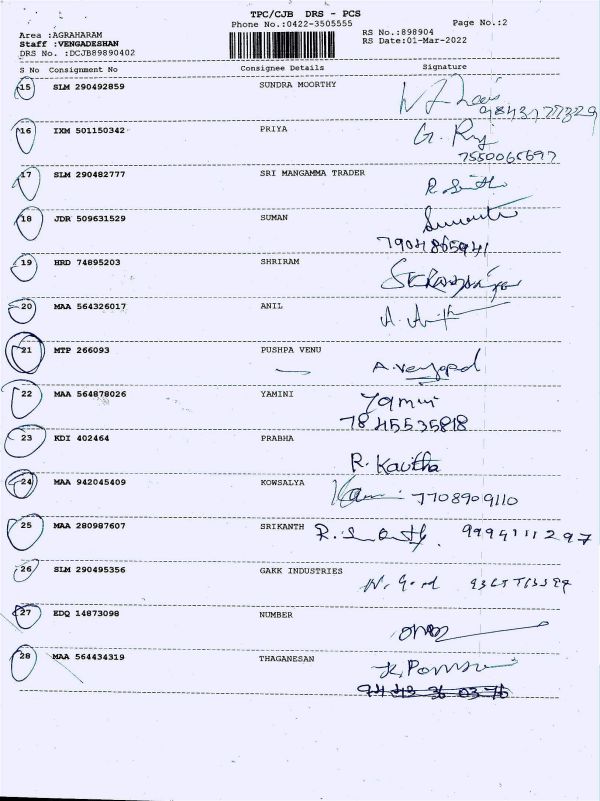 TPC/CJB DRS - PCS
Phone No.:0422-3505555 Page No.:2
Area :AGRAHARAM RS No.:898904
Staff :VENGADESHAN RS Date:01-Mar-2022
DRS No. :DCJB89890402
S No Consignment No Consignee Details Signature
15 SLM 290492859 SUNDRA MOORTHY
9843177329
16 IXM 501150342 PRIYA
7550065697
17 SLM 290482777 SRI MANGAMMA TRADER
18 JDR 509631529 SUMAN
7904865941
19 HRD 74895203 SHRIRAM
20 MAA 564326017 ANIL
21 MTP 266093 PUSHPA VENU
A.Venugopal
22 MAA 564878026 YAMINI Yamini
7845535818
23 KDI 402464 PRABHA
R. Kavitha
24 MAA 942045409 KOWSALYA 7708909110
25 MAA 280987607 SRIKANTH 9994111297
26 SLM 290495356 GAKK INDUSTRIES
27 EDQ 14873098 NUMBER
28 MAA 564434319 THAGANESAN